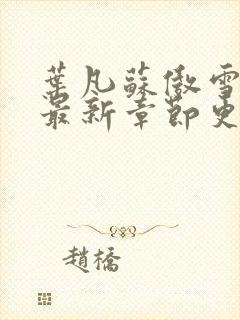 葉凡蘇傲雪
最新章節更
趙橋